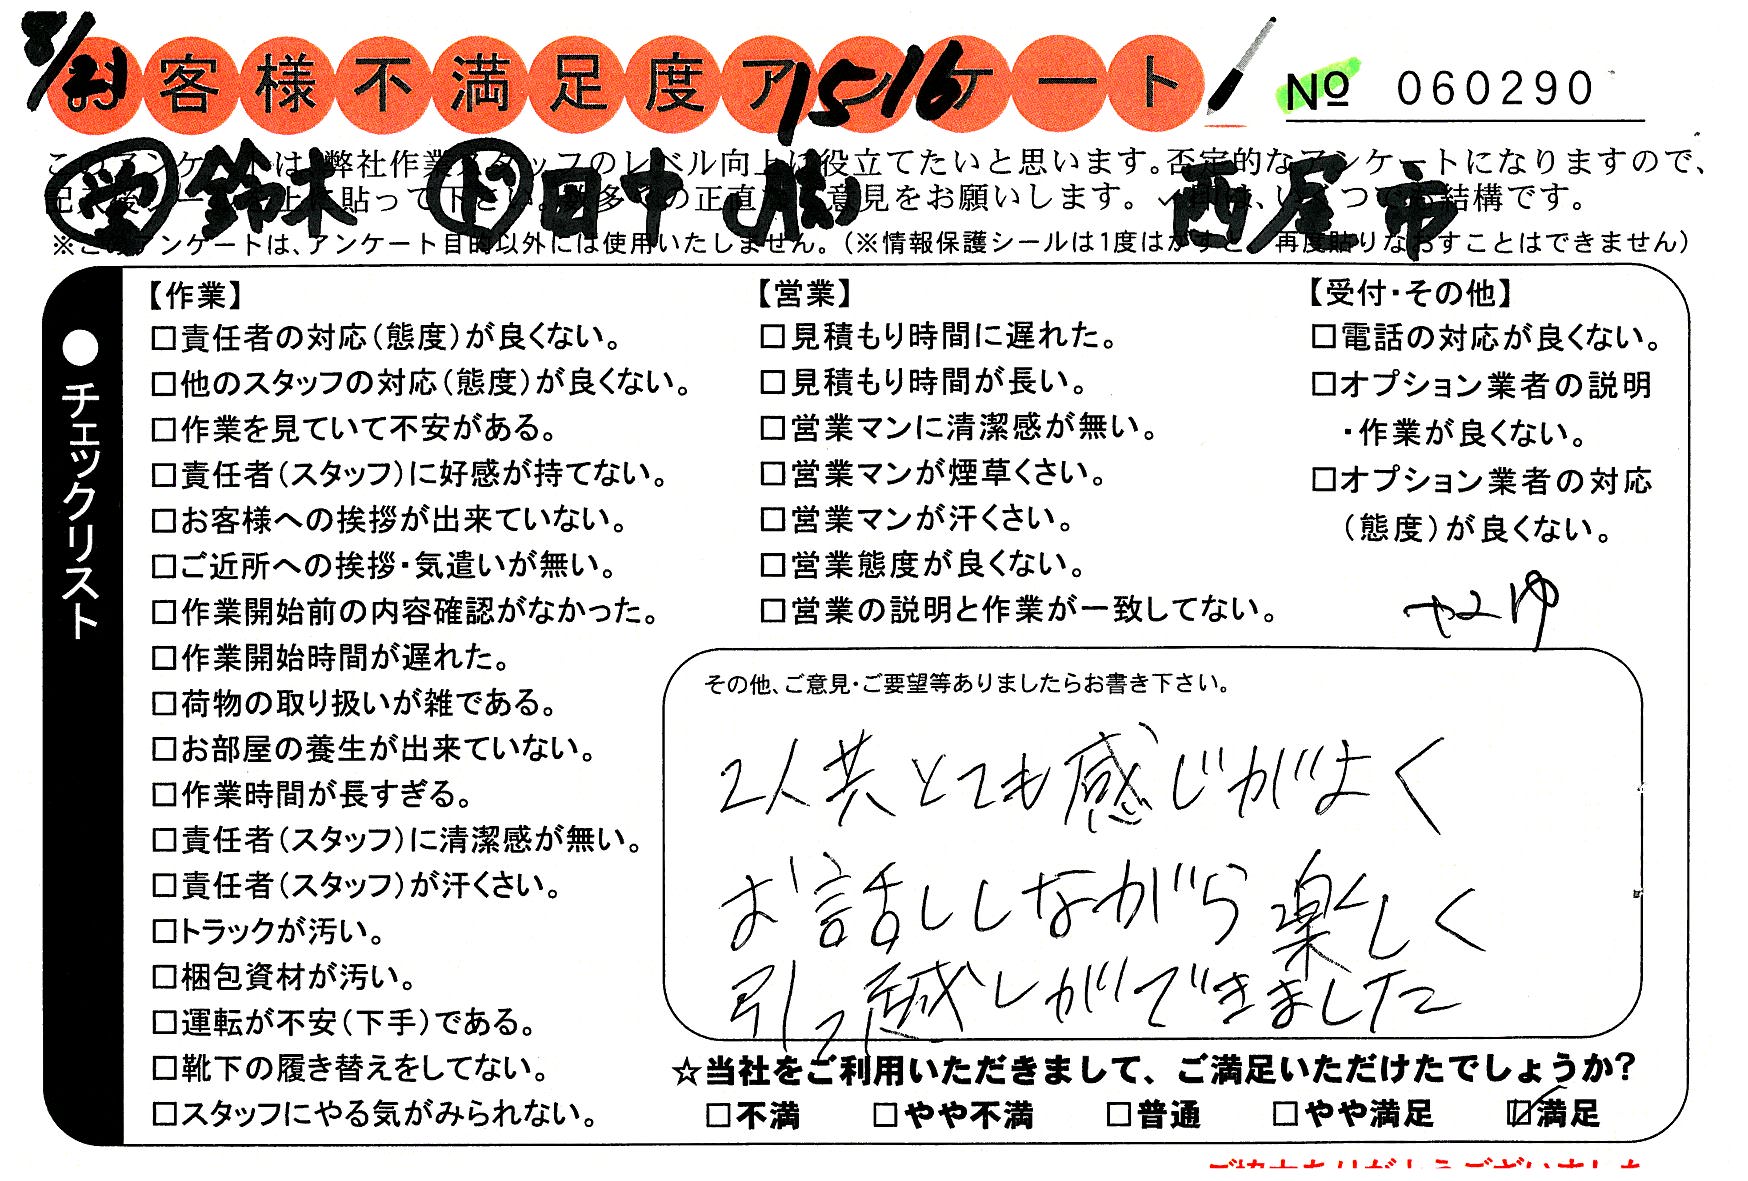 8/21
お客様不満足度アンケート
1516
No 060290
このアンケートは、弊社作業スタッフのレベル向上に役立てたいと思います。否定的なアンケートになりますので、
受 鈴木 下 田中 西尾市
貼って下さい。数多くの正直 意見をお願いします。 いくつ 結構です。
※このアンケートは、アンケート目的以外には使用いたしません。(※情報保護シールは1度はがすと、再度貼りなおすことはできません)
●チェックリスト
【作業】
□責任者の対応(態度)が良くない。
□他のスタッフの対応(態度)が良くない。
□作業を見ていて不安がある。
□責任者(スタッフ)に好感が持てない。
□お客様への挨拶が出来ていない。
□ご近所への挨拶・気遣いが無い。
□作業開始前の内容確認がなかった。
□作業開始時間が遅れた。
□荷物の取り扱いが雑である。
□お部屋の養生が出来ていない。
□作業時間が長すぎる。
□責任者(スタッフ)に清潔感が無い。
□責任者(スタッフ)が汗くさい。
□トラックが汚い。
□梱包資材が汚い。
□運転が不安(下手)である。
□靴下の履き替えをしてない。
□スタッフにやる気がみられない。
【営業】
□見積もり時間に遅れた。
□見積もり時間が長い。
□営業マンに清潔感が無い。
□営業マンが煙草くさい。
□営業マンが汗くさい。
□営業態度が良くない。
□営業の説明と作業が一致してない。
【受付・その他】
□電話の対応が良くない。
□オプション業者の説明
・作業が良くない。
□オプション業者の対応
(態度)が良くない。
その他、ご意見・ご要望等ありましたらお書き下さい。
2人共とても感じがよく
お話ししながら楽しく
引っ越しができました
☆当社をご利用いただきまして、ご満足いただけたでしょうか?
□不満 □やや不満 □普通 □やや満足 ☑満足
ご協力ありがとうございました